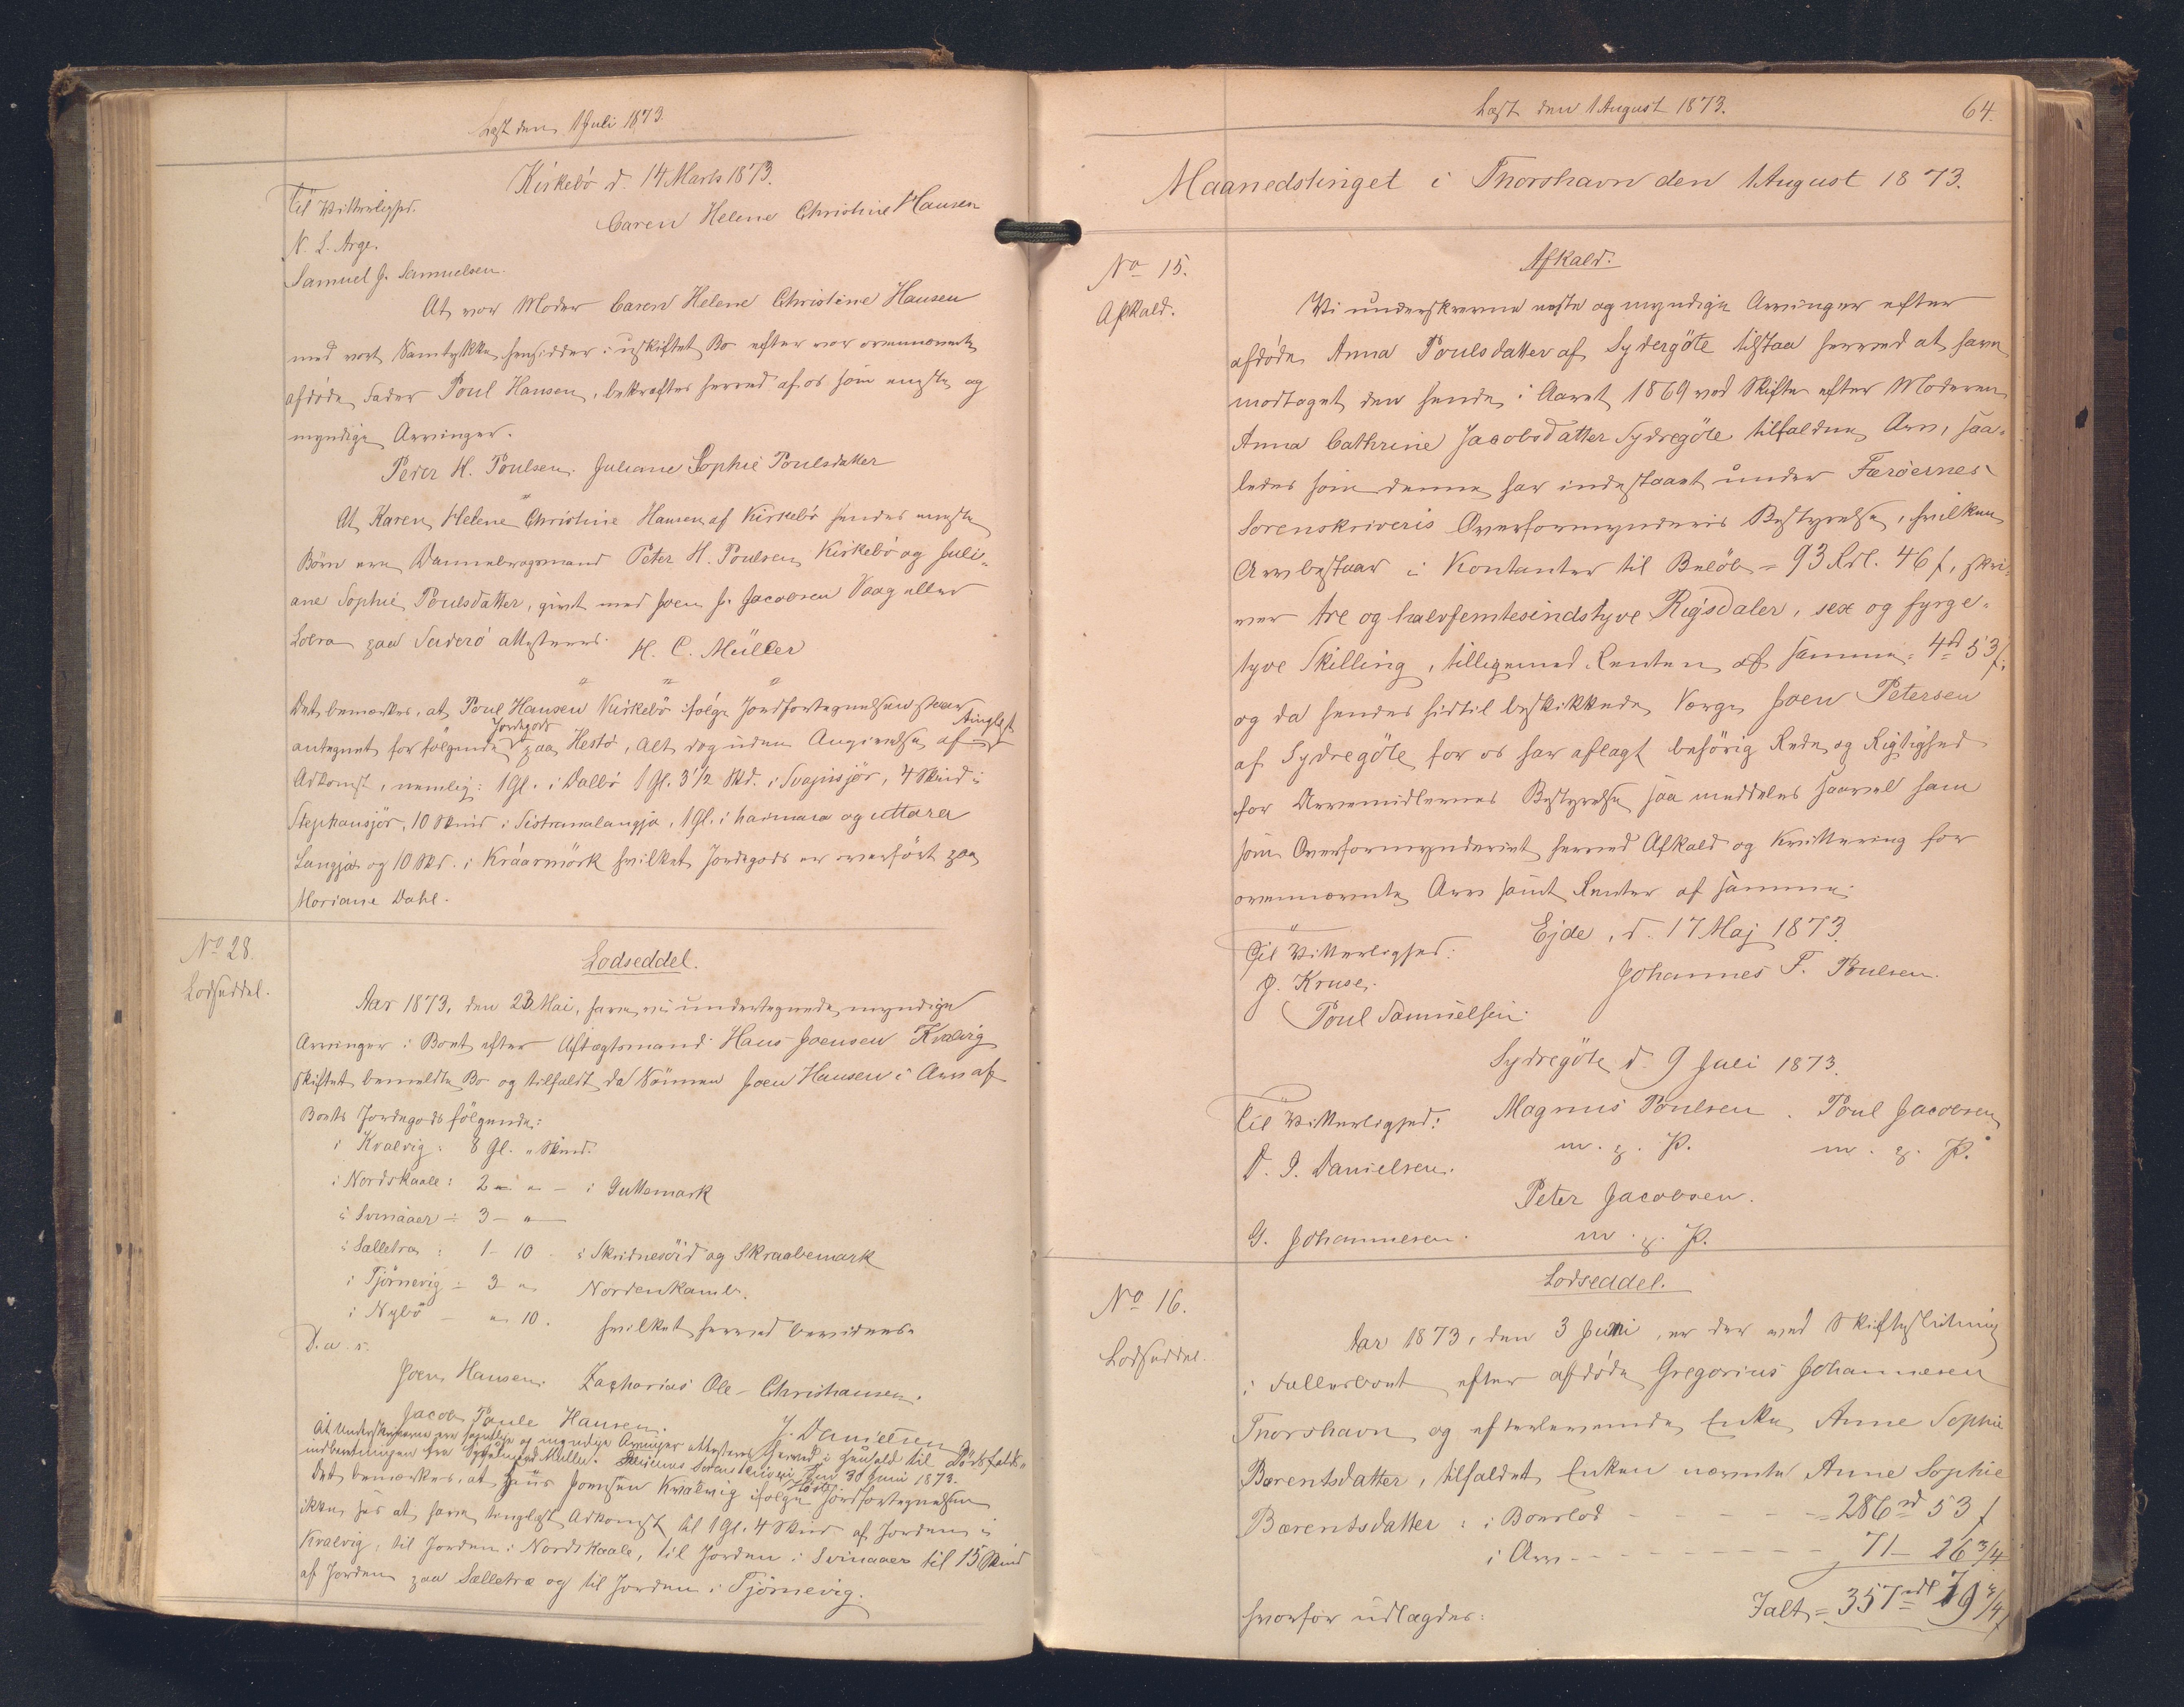 Læst den 1 Juli 1873.
Kirkebö d. 14 Marts 1873.
Til Vitterlighed.
Caren Helene Christine Hansen
N. L. Arge.
Samuel J. Samuelsen.
At vor Moder Caren Helene Christine Hansen
med vort Samtykke hensidder i uskiftet Bo efter vor ovennævnte
afdøde Fader Poul Hansen, bekræftes herved af os som eneste og
myndige Arvinger.
Peder H. Poulsen. Juliane Sophie Poulsdatter
At Karen Helene Christine Hansen af Kirkebö hendes eneste
Börn ere Dannebrogsmand Peter H. Poulsen Kirkebö og Juli-
ane Sophie Poulsdatter, givt med Joen J. Jacobsen Vaag eller
Lobra paa Suderö attesteres. H. C. Müller
Det bemærkes, at Poul Hansen Kirkebö ifølge Jordfortegnelsen staar
antegnet for følgende Jordegods paa Hestö, Alt dog uden Angivelse af tinglyst
Adkomst, nemlig: 1 Gl. i Dalbö 1 Gl. 3 1/2 Skd. i Svapisjör, 4 Skind i
Stephansjör, 10 Skind i Sistramalangja, 1 Gl. i haimara og uttara
Langja og 10 Skd. i Kráarmörk hvilket Jordegods er overført paa
Mariane Dahl.
No 28.
Lodseddel.
Lodseddel.
Aar 1873, den 23 Mai, have vi undertegnede myndige
Arvinger i Boet efter Aftægtsmand Hans Joensen Kvalvig
skiftet bemeldte Bo og tilfaldt da Sönnen Joen Hansen i Arv af
Boets Jordegods følgende:
i Kvalvig: 8 Gl. " Skind.
i Nordskaale: 2 - " - i Guttemark
i Svinaaer - 3 - " -
i Sælletræ : 1 - 10 - i Skridnesöid og Skraabemark
i Tjörnevig - 3 - " Nordenkamb.
i Nybö - " 10. hvilket herved bevidnes.
D. u. s.
Joen Hansen. Zacharias Ole Christiansen.
Jacob Paule Hansen. J. Danielsen
At Underskriverne ere samtlige og myndige Arvinger attesteres herved i Henhold til Dödsfalds-
indberetningen fra Sysselmand Müller. Færöernes Sorenskriveri den 30 Juni 1873.
Det bemærkes, at Hans Joensen Kvalvig ifølge Jordfortegnelsen
ikke ses at have tinglæst Adkomst til 1 Gl. 4 Skind af Jorden i
Kvalvig, til Jorden i Nordskaale, til Jorden i Svinaaer til 15 Skind
af Jorden paa Sælletræ og til Jorden i Tjörnevig.
Læst den 1 August 1873.
64.
Maanedstinget i Thorshavn den 1 August 1873.
No 15.
Afkald.
Afkald.
Vi underskrevne næste og myndige Arvinger efter
afdøde Anna Poulsdatter af Sydergöte tilstaa herved at have
modtaget den hende i Aaret 1869 ved Skifte efter Moderen
Anna Cathrine Jacobsdatter Sydregöte tilfaldne Arv, saa-
ledes som denne har indestaaet under Færöernes
Sorenskriveris Overformynderis Bestyrelse, hvilken
Arv bestaar i Kontanter til Belöb = 93 Rdl. 46 ß, skri-
ver tre og halvfemtesindstyve Rigsdaler, sex og fyrge-
tyve Skilling, tilligemed Renten af samme = 4 rd 53 ß.
og da hendes hidtil beskikkede Værge Joen Petersen
af Sydregöte for os har aflagt behörig Rede og Rigtighed
for Arvemidlernes Bestyrelse saa meddeles saavel ham
som Overformynderiet herved Afkald og Kvittering for
ovennævnte Arv samt Renter af samme.
Ejde, d. 17 Maj 1873.
Til Vitterlighed:
Johannes F. Poulsen.
J. Kruse.
Poul Samuelsen.
Sydregöte d. 9 Juli 1873.
Til Vitterlighed:
Magnus Poulsen. Poul Jacobsen
m. f. P. m. f. P.
D. J. Danielsen.
Peter Jacobsen.
G. Johannesen. m. f. P.
No 16.
Lodseddel.
Lodseddel.
Aar 1873, den 3 Juni, er der ved Skifteslutning
i Fællesboet efter afdøde Gregorius Johannesen
Thorshavn og efterlevende Enke Anne Sophie
Bærentsdatter, tilfaldet Enken nævnte Anne Sophie
Bærentsdatter: i Boeslod - - - - - = 286 rd 53 ß
i Arv - - - - - - - - 71 - 26 3/4
hvorfor udlægdes: Ialt = 357 rdl 79 3/4 ß